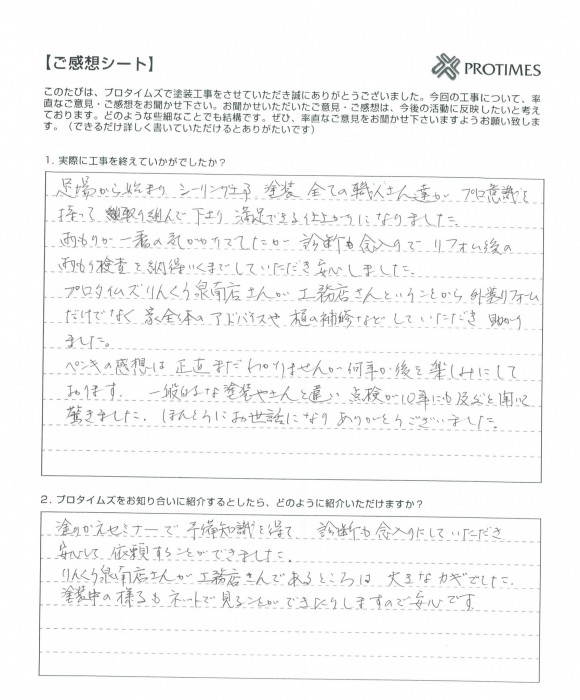 【ご感想シート】
PROTIMES
このたびは、プロタイムズで塗装工事をさせていただき誠にありがとうございました。今回の工事について、率
直なご意見・ご感想をお聞かせ下さい。お聞かせいただいたご意見・ご感想は、今後の活動に反映したいと考え
ております。どのような些細なことでも結構です。ぜひ、率直なご意見をお聞かせ下さいますようお願い致しま
す。（できるだけ詳しく書いていただけるとありがたいです）
1. 実際に工事を終えていかがでしたか？
足場から始まり シーリング工事 塗装 全ての職人さん達が プロ意識を
持って 取り組んで下さり 満足できる仕上がりになりました。
雨もりが一番の気がかりでしたが 診断も念入りで リフォム後の
雨もり検査も納得いくまでしていただき安心しました。
プロタイムズりんくう泉南店さんが工務店さんということから外装リフォーム
だけでなく 家全体のアドバイスや 補修など していただき 助かり
ました。
ペンキの感想は 正直 まだわかりませんが 何年か後を楽しみにして
おります。 一般的な塗装やさんと違い 点検が10年にも及ぶと聞いて
驚きました。 ほんとうにお世話になり ありがとうございました。
2. プロタイムズをお知り合いに紹介するとしたら、どのように紹介いただけますか？
塗りかえセミナーで 予備知識を得て 診断も念入りにしていただき
安心して 依頼することができました。
りんくう泉南店さんが 工務店さんであるところは 大きなカギでした。
塗装中の様子も ネットで見ることができたりしますので安心です